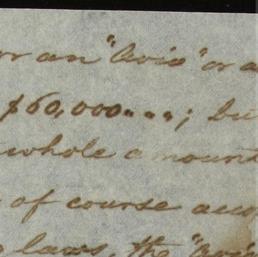 or an "Avio" or a
$60,000....; bu
whole amount
of course acco
laws, the "Avi